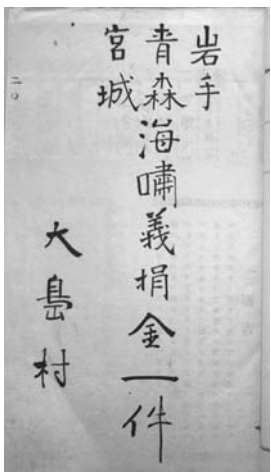 岩手
青森
宮城
海嘯義捐金一件
大島村
二〇